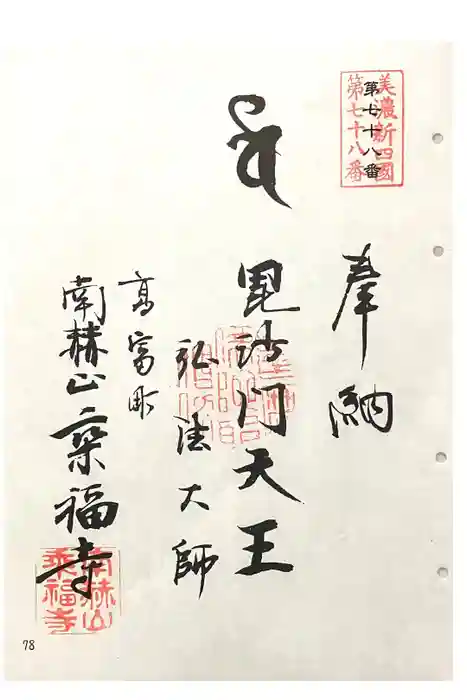 美濃新四國
第七十八番
第七十八番
奉納
毘沙門天王
弘法大師
高富町
南赫山
乗福寺
南赫山
乗福寺
78